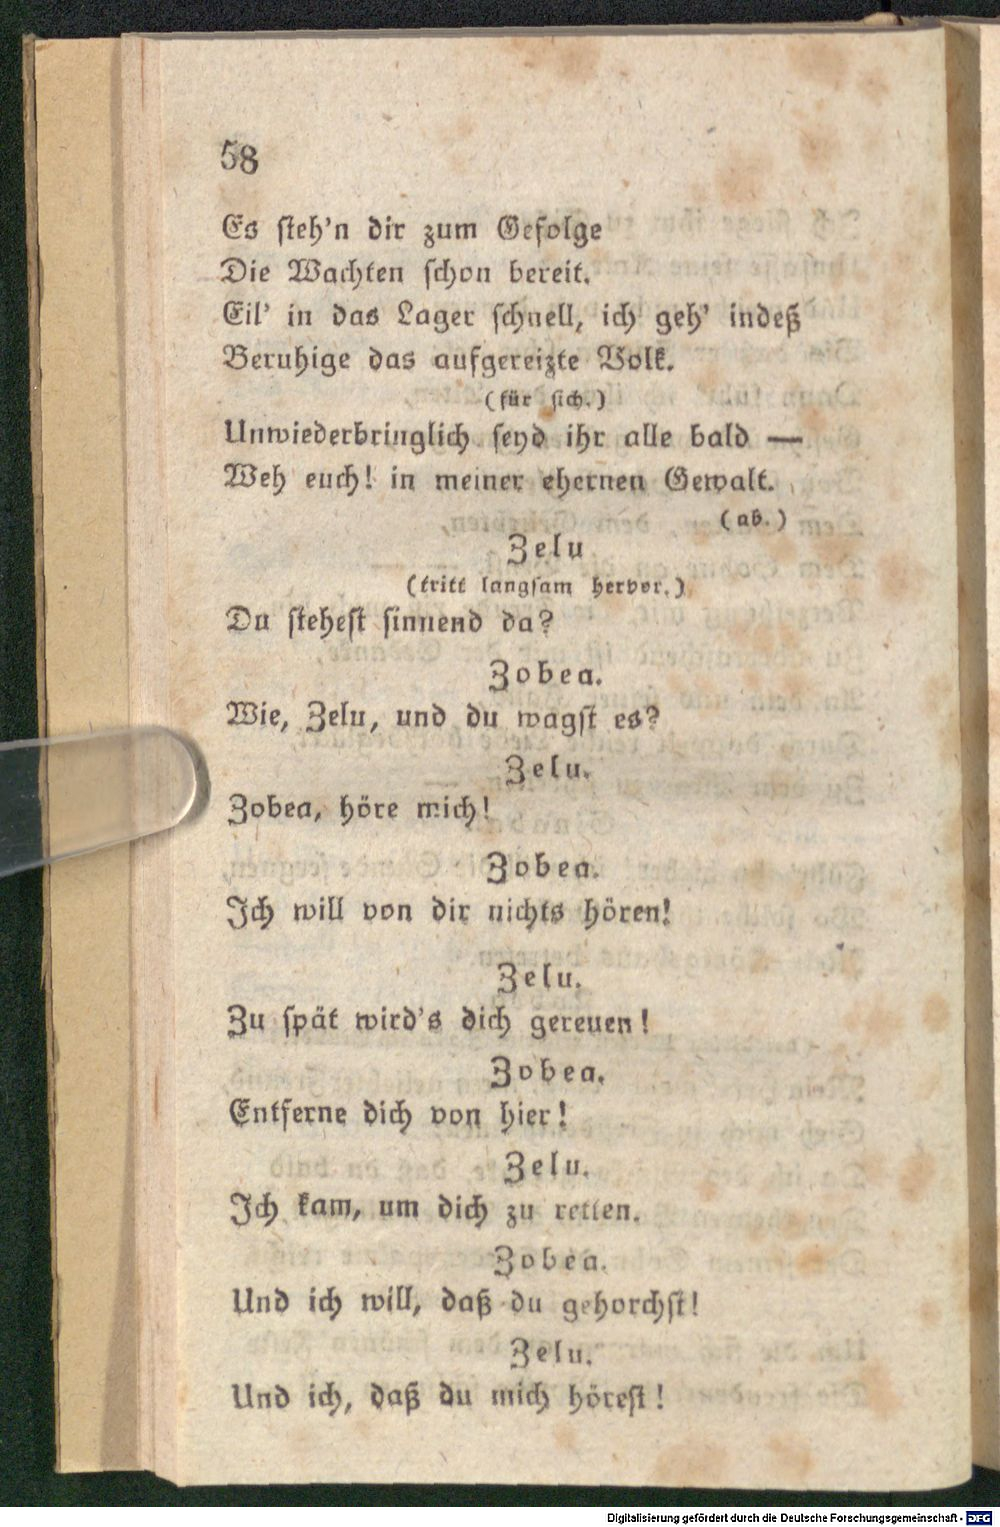 58
Es steh'n dir zum Gefolge
Die Wachten schon bereit.
Eil' in das Lager schnell, ich geh' indeß
Beruhige das aufgereizte Volk.
(für sich.)
Unwiederbringlich seyd ihr alle bald —
Weh euch! in meiner ehernen Gewalt.
(ab.)
Zelu
(tritt langsam hervor.)
Du stehest sinnend da?
Zobea.
Wie, Zelu, und du wagst es?
Zelu.
Zobea, höre mich!
Zobea.
Ich will von dir nichts hören!
Zelu.
Zu spät wird's dich gereuen!
Zobea.
Entferne dich von hier!
Zelu.
Ich kam, um dich zu retten.
Zobea.
Und ich will, daß du gehorchst!
Zelu.
Und ich, daß du mich hörest!
Digitalisierung gefördert durch die Deutsche Forschungsgemeinschaft - DFG